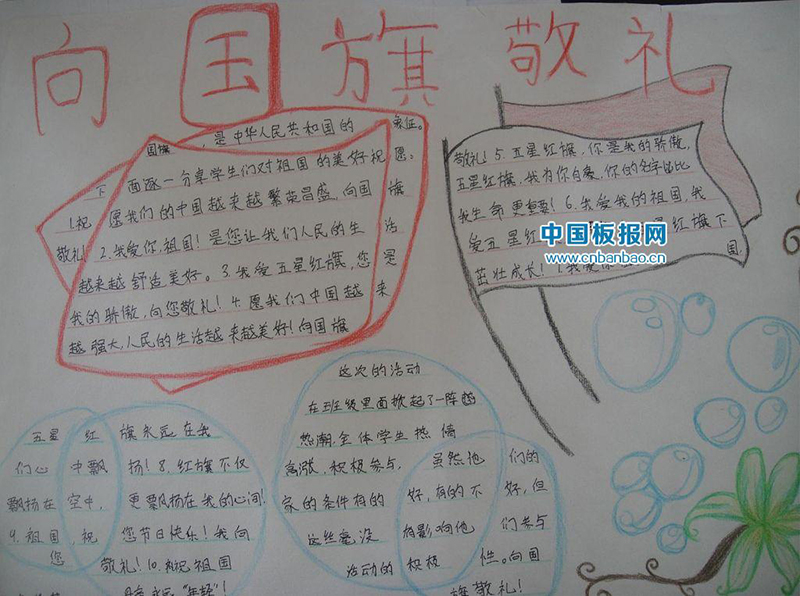 向国旗敬礼
国旗,是中华人民共和国的象征。
下面逐一分享学生们对祖国的美好祝愿:
1.祝愿我们的中国越来越繁荣昌盛,向国旗
敬礼!2.我爱你,祖国!是您让我们人民的生活
越来越舒适美好。3.我爱五星红旗,您是
我的骄傲,向您敬礼!4.愿我们中国越来
越强大,人民的生活越来越美好!向国旗
敬礼!5.五星红旗,你是我的骄傲,
五星红旗,我为你自豪,你的名字比
我生命更重要!6.我爱我的祖国,我
爱五星红 红旗下
茁壮成长!7.我爱你 国
中国板报网
www.cnbanbao.cn
五星红旗永远在我
们心中飘扬!8.红旗不仅
飘扬在空中,更飘扬在我的心间!
9.祖国,祝您节日快乐!我向
您敬礼!10.祝祖国
永远"年轻"!
这次的活动
在班级里面掀起了一阵
热潮,全体学生热情
高涨,积极参与,虽然他们的
家的条件有的好,有的不好,但
这丝毫没有影响他们参与
活动的积极性。向国
旗敬礼!